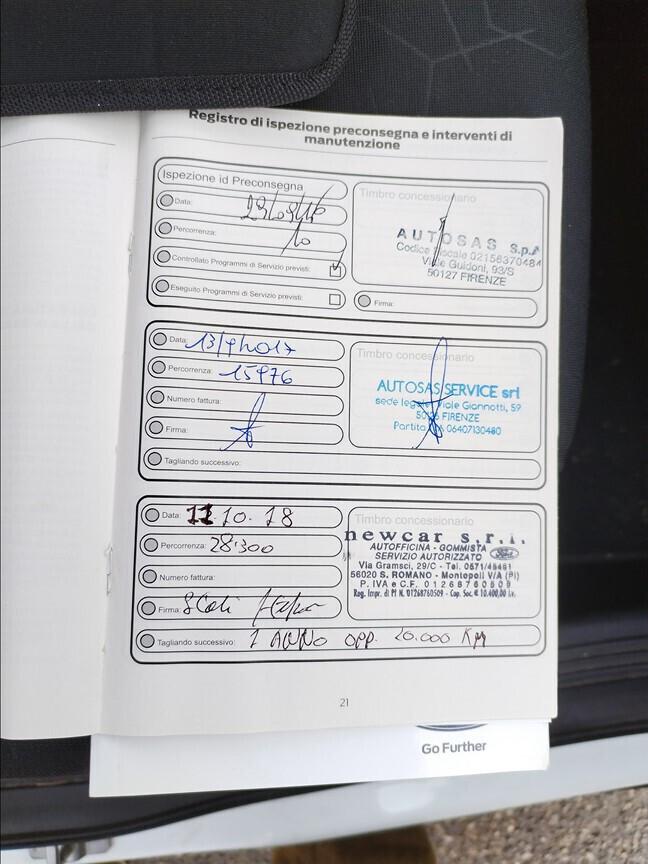 Registro di ispezione preconsegna e interventi di
manutenzione
Ispezione id Preconsegna
Data:
Percorrenza: 10
Controllato Programmi di Servizio previsti:
Eseguito Programmi di Servizio previsti:
Timbro concessionario
AUTOSAS S.p.A
Codice Fiscale 02156370484
Viale Guidoni, 93/S
50127 FIRENZE
Firma:
Data: 13/9/2017
Percorrenza: 15976
Numero fattura:
Firma:
Timbro concessionario
AUTOSAS SERVICE srl
sede legale Viale Giannotti, 59
FIRENZE
Partita 06407130480
Tagliando successivo:
Data: 11 10. 18
Percorrenza: 28.300
Numero fattura:
Firma:
Timbro concessionario
newcar s.r.l.
AUTOFFICINA - GOMMISTA
SERVIZIO AUTORIZZATO Ford
Via Gramsci, 29/C - Tel. 0571/
56020 S. ROMANO - Montopoli V/A (PI)
P. IVA e C.F. 01268760509
Reg. Impr. di PI N. 01268760509 - Cap. Soc. € 10.400,00 i.v.
Tagliando successivo: 1 ANNO OPP. 20.000 KM
21
Go Further